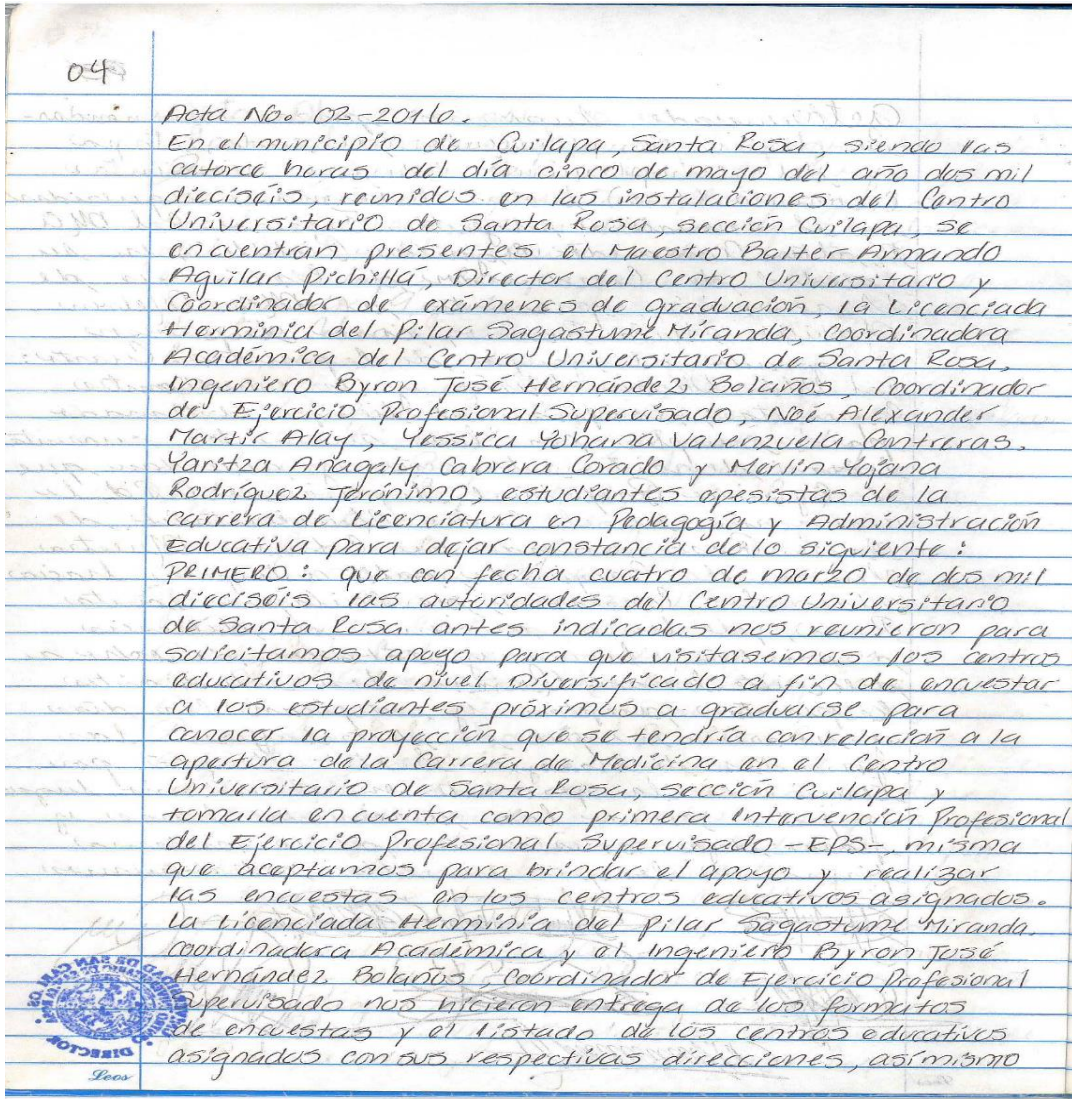 04
Acta No. 02-2016.
En el municipio de Cuilapa, Santa Rosa, siendo las
catorce horas del día cinco de mayo del año dos mil
dieciséis, reunidos en las instalaciones del Centro
Universitario de Santa Rosa, sección Cuilapa, se
encuentran presentes el Maestro Balter Armando
Aguilar Pichillá, Director del Centro Universitario y
Coordinador de exámenes de graduación, la Licenciada
Herminia del Pilar Sagastume Miranda, Coordinadora
Académica del Centro Universitario de Santa Rosa,
Ingeniero Byron José Hernández Bolaños, Coordinador
de Ejercicio Profesional Supervisado, Noé Alexander
Martir Alay, Yessica Yohana Valenzuela Contreras,
Yaritza Anagaly Cabrera Corado y Merlin Yojana
Rodríguez Jerónimo, estudiantes epesistas de la
carrera de Licenciatura en Pedagogía y Administración
Educativa para dejar constancia de lo siguiente:
PRIMERO: que con fecha cuatro de marzo de dos mil
dieciséis las autoridades del Centro Universitario
de Santa Rosa antes indicadas nos reunieron para
solicitarnos apoyo para que visitasemos los centros
educativos de nivel Diversificado a fin de encuestar
a los estudiantes próximos a graduarse para
conocer la proyección que se tendría con relación a la
apertura de la Carrera de Medicina en el Centro
Universitario de Santa Rosa, sección Cuilapa y
tomarla en cuenta como primera Intervención Profesional
del Ejercicio Profesional Supervisado -EPS-, misma
que aceptamos para brindar el apoyo y realizar
las encuestas en los centros educativos asignados.
La Licenciada Herminia del Pilar Sagastume Miranda,
coordinadora Académica y el Ingeniero Byron José
Hernández Bolaños, Coordinador de Ejercicio Profesional
Supervisado nos hicieron entrega de los formatos
de encuestas y el listado de los centros educativos
asignados con sus respectivas direcciones, asímismo
DIRECTOR
Leos